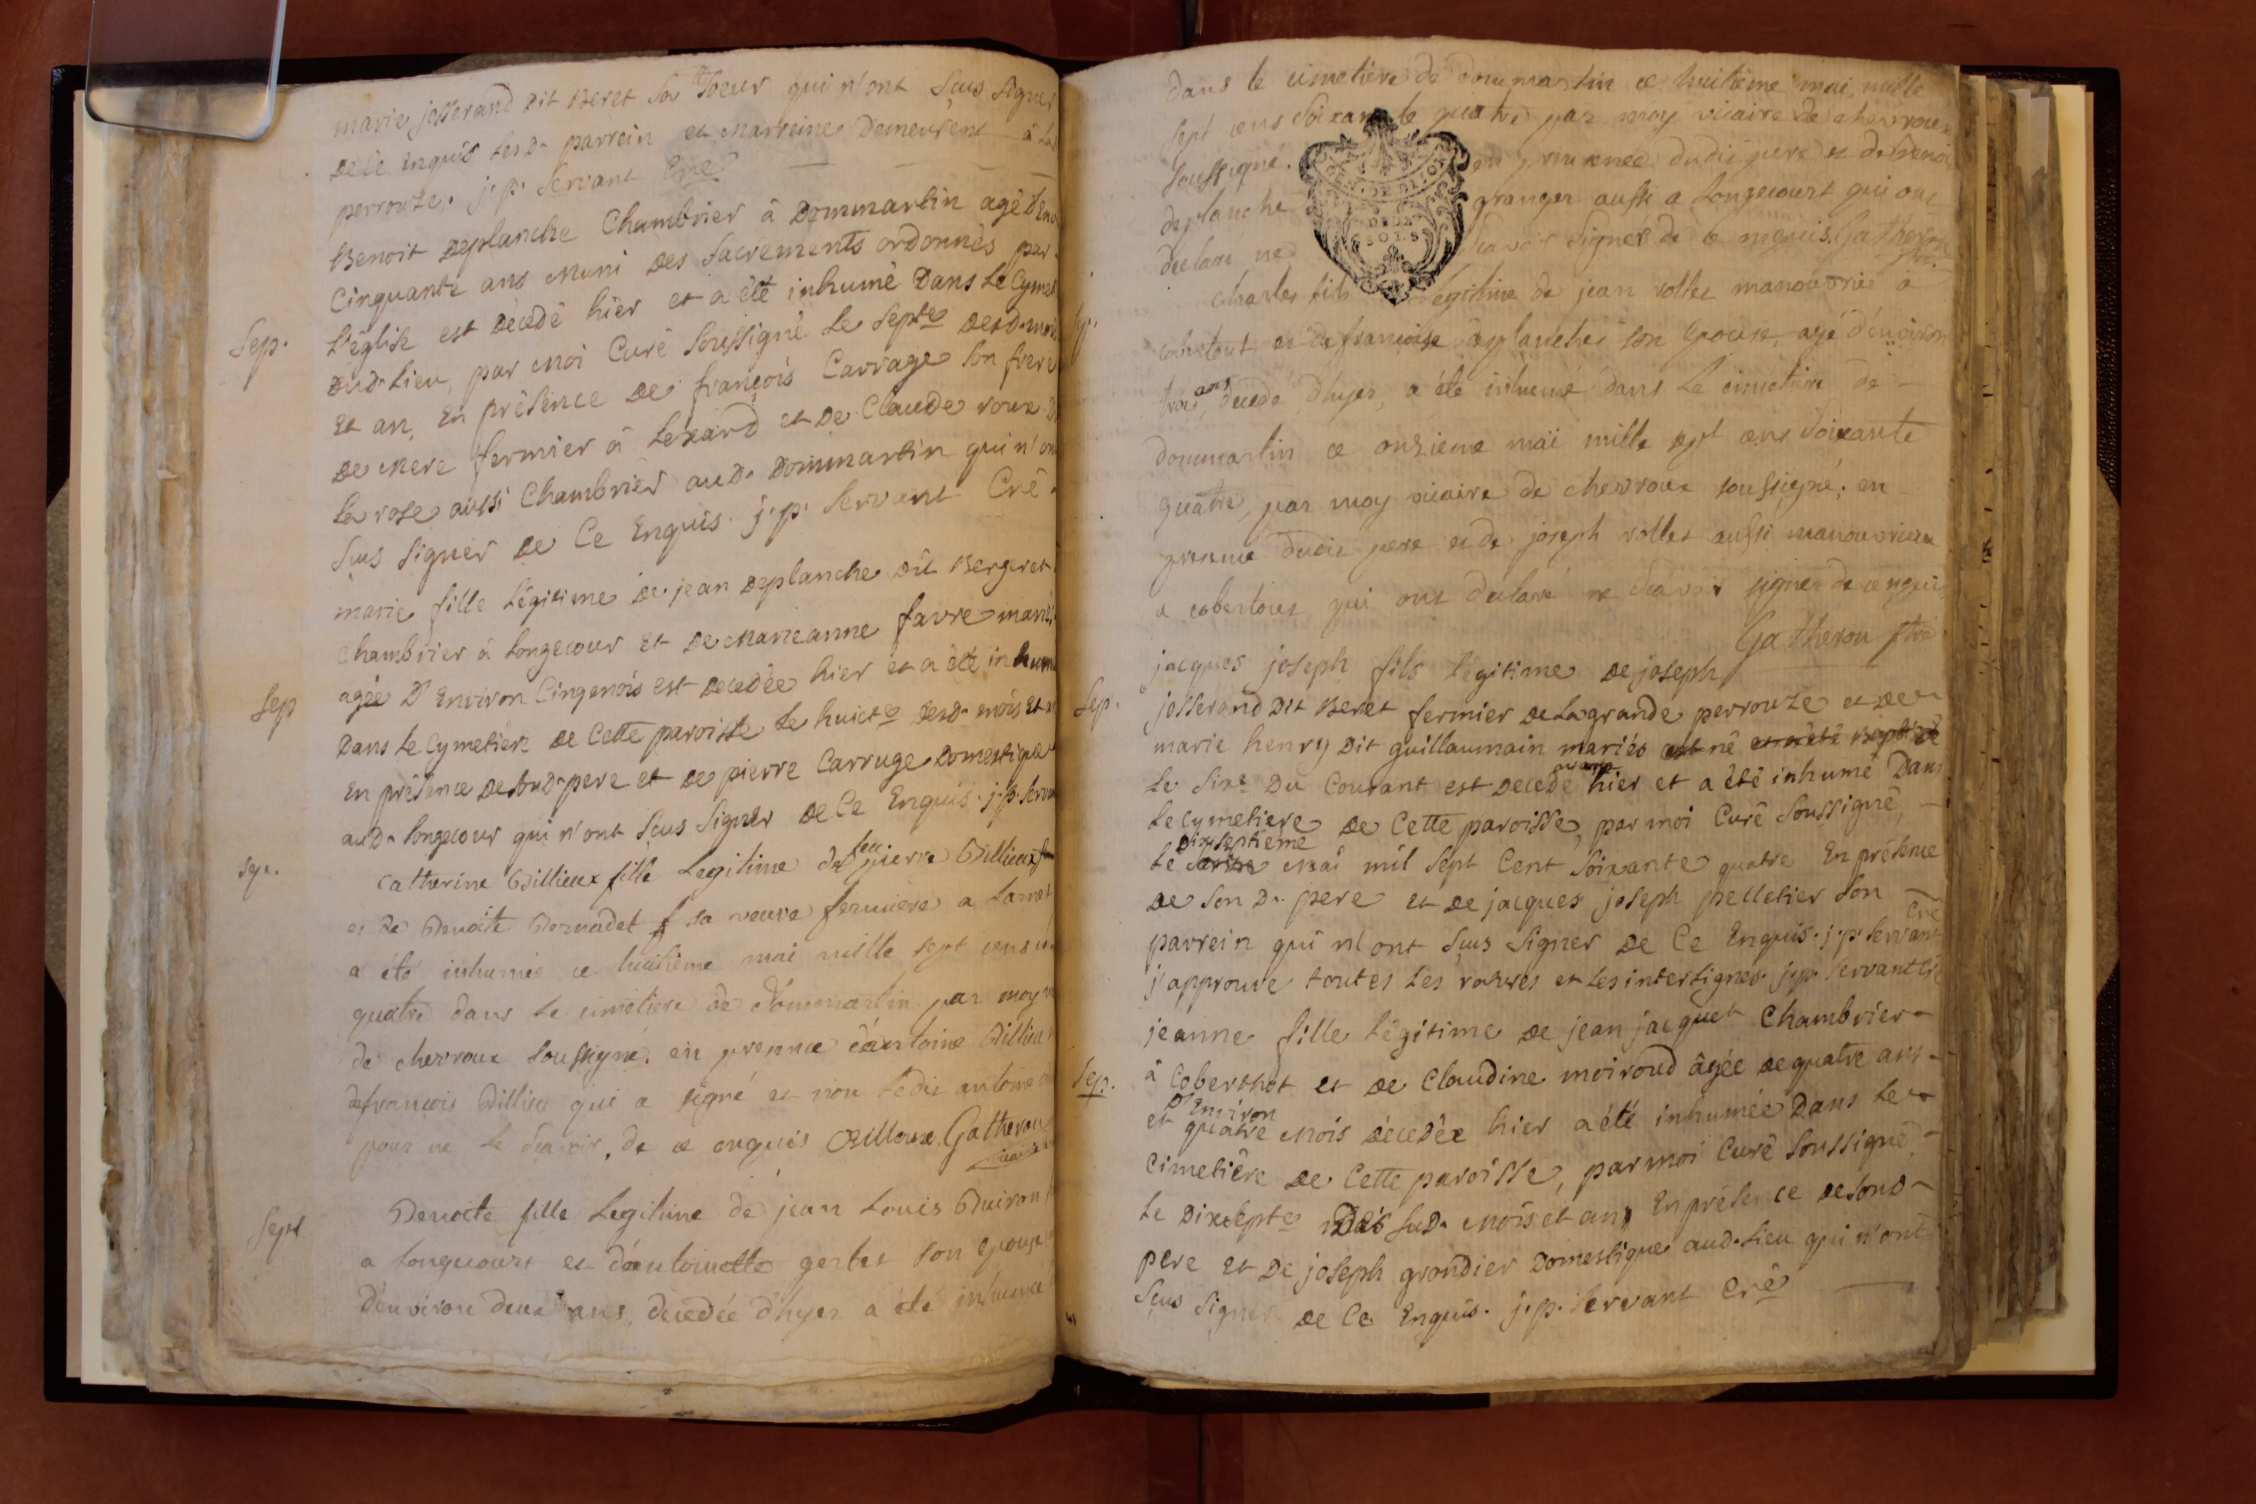 marie josserand dit Beret sa soeur qui n'ont scus signer
de ce enquis lesd. parrein et marreine demeurent à la
perrouze. j. p. servant Cré
Benoit deplanche Chambrier à Dommartin agé d'env
Cinquante ans muni des sacrements ordonnés par
L'église est décédé hier et a été inhumé Dans Le Cymet
Sep.
dud. Lieu, par moi Curé soussigné Le septe desd. mois
Et an, En présence De françois Carrage son frere
De mere fermier à Lexard et De Claude roux
La rose aussi Chambrier aud. Dommartin qui n'on
scus signer De Ce Enquis. j. p. servant Cré
marie fille Légitime de jean Deplanche Dit Bergeret
Chambrier à Longecour Et De marieanne favre mariés
agée D'Environ Cinqmois est decedée hier et a été inhumé
Sep
Dans Le Cymetiere De Cette paroisse Le huicte desd. mois Et
En présence De sond. pere et De pierre Carruge Domestique
aud. Longecour qui n'ont scus signer De Ce Enquis. j. p. serva
sep.
Catherine Billieux fille Legitime de feu pierre Billieux
et de Benoite Bernadet sa veuve fermiere a
a été inhumée ce huitième mai mille sept cens
quatre dans le cimetiere de dommartin par moy
de chevroux soussigné. en presence d'antoine Billieu
de francois Billieu qui a signé et non ledit antoine
pour ne le sçavoir, de ce enquis Billoux Gatherou
vicaire
Sept
Benoite fille Legitime de jean Louis Buiron
a longecourt et d'antoinette gerbet son epouse
d'environ deux ans, decedée d'hyer a été inhumée
dans le cimetiere de dommartin ce huitième mai mille
sept cens soixante quatre par moy vicaire de chevroux
soussigné. en presence dudit pere et de benoit
deplanche granger aussi a longecourt qui ont
declaré ne scavoir signer de ce enquis. Gatherou
ptre.
Sep.
charles fils légitime de jean rollet manouvrier à
cobertout et de françoise deplanches son epouse, agé d'environ
trois ans, decedé d'hyer, a été inhumé dans le cimetiere de
dommartin ce onzieme mai mille sept cens soixante
quatre, par moy vicaire de chevroux soussigné; en
presence dudit pere et de joseph rollet aussi manouvrier
a cobertout qui ont declaré ne scavoir signer de ce enquis
Gatherou ptre
jacques joseph fils légitime De joseph
Sep.
josserand Dit Beret fermier De La grande perrouze et De
marie henry Dit guillaumain mariés est né et a été baptisé
Le sixe Du Courant est decedé avant hier et a été inhumé Dans
Le Cymetiere De Cette paroisse, par moi Curé soussigné,
Le Dixseptieme mai mil sept Cent soixante quatre En présence
De son D. pere et De jacques joseph pelletier son
parrein qui n'ont scus signer De Ce Enquis. j. p. servant Cré
j'approuve toutes Les ratures et Les interlignes. j. p. servant Cré
jeanne fille Légitime De jean jacquet Chambrier
Sep.
à Coberthot et De Claudine moiroud âgée De quatre ans
et D'Environ quatre mois décédée hier a été inhumée Dans Le
Cimetiére De Cette paroisse, par moi Curé soussigné,
Le Dixsepte Des sud. mois et an, En présence De sond
pere Et De joseph grondier Domestique aud. Lieu qui n'ont
scus signer De Ce Enquis. j. p. servant Cré